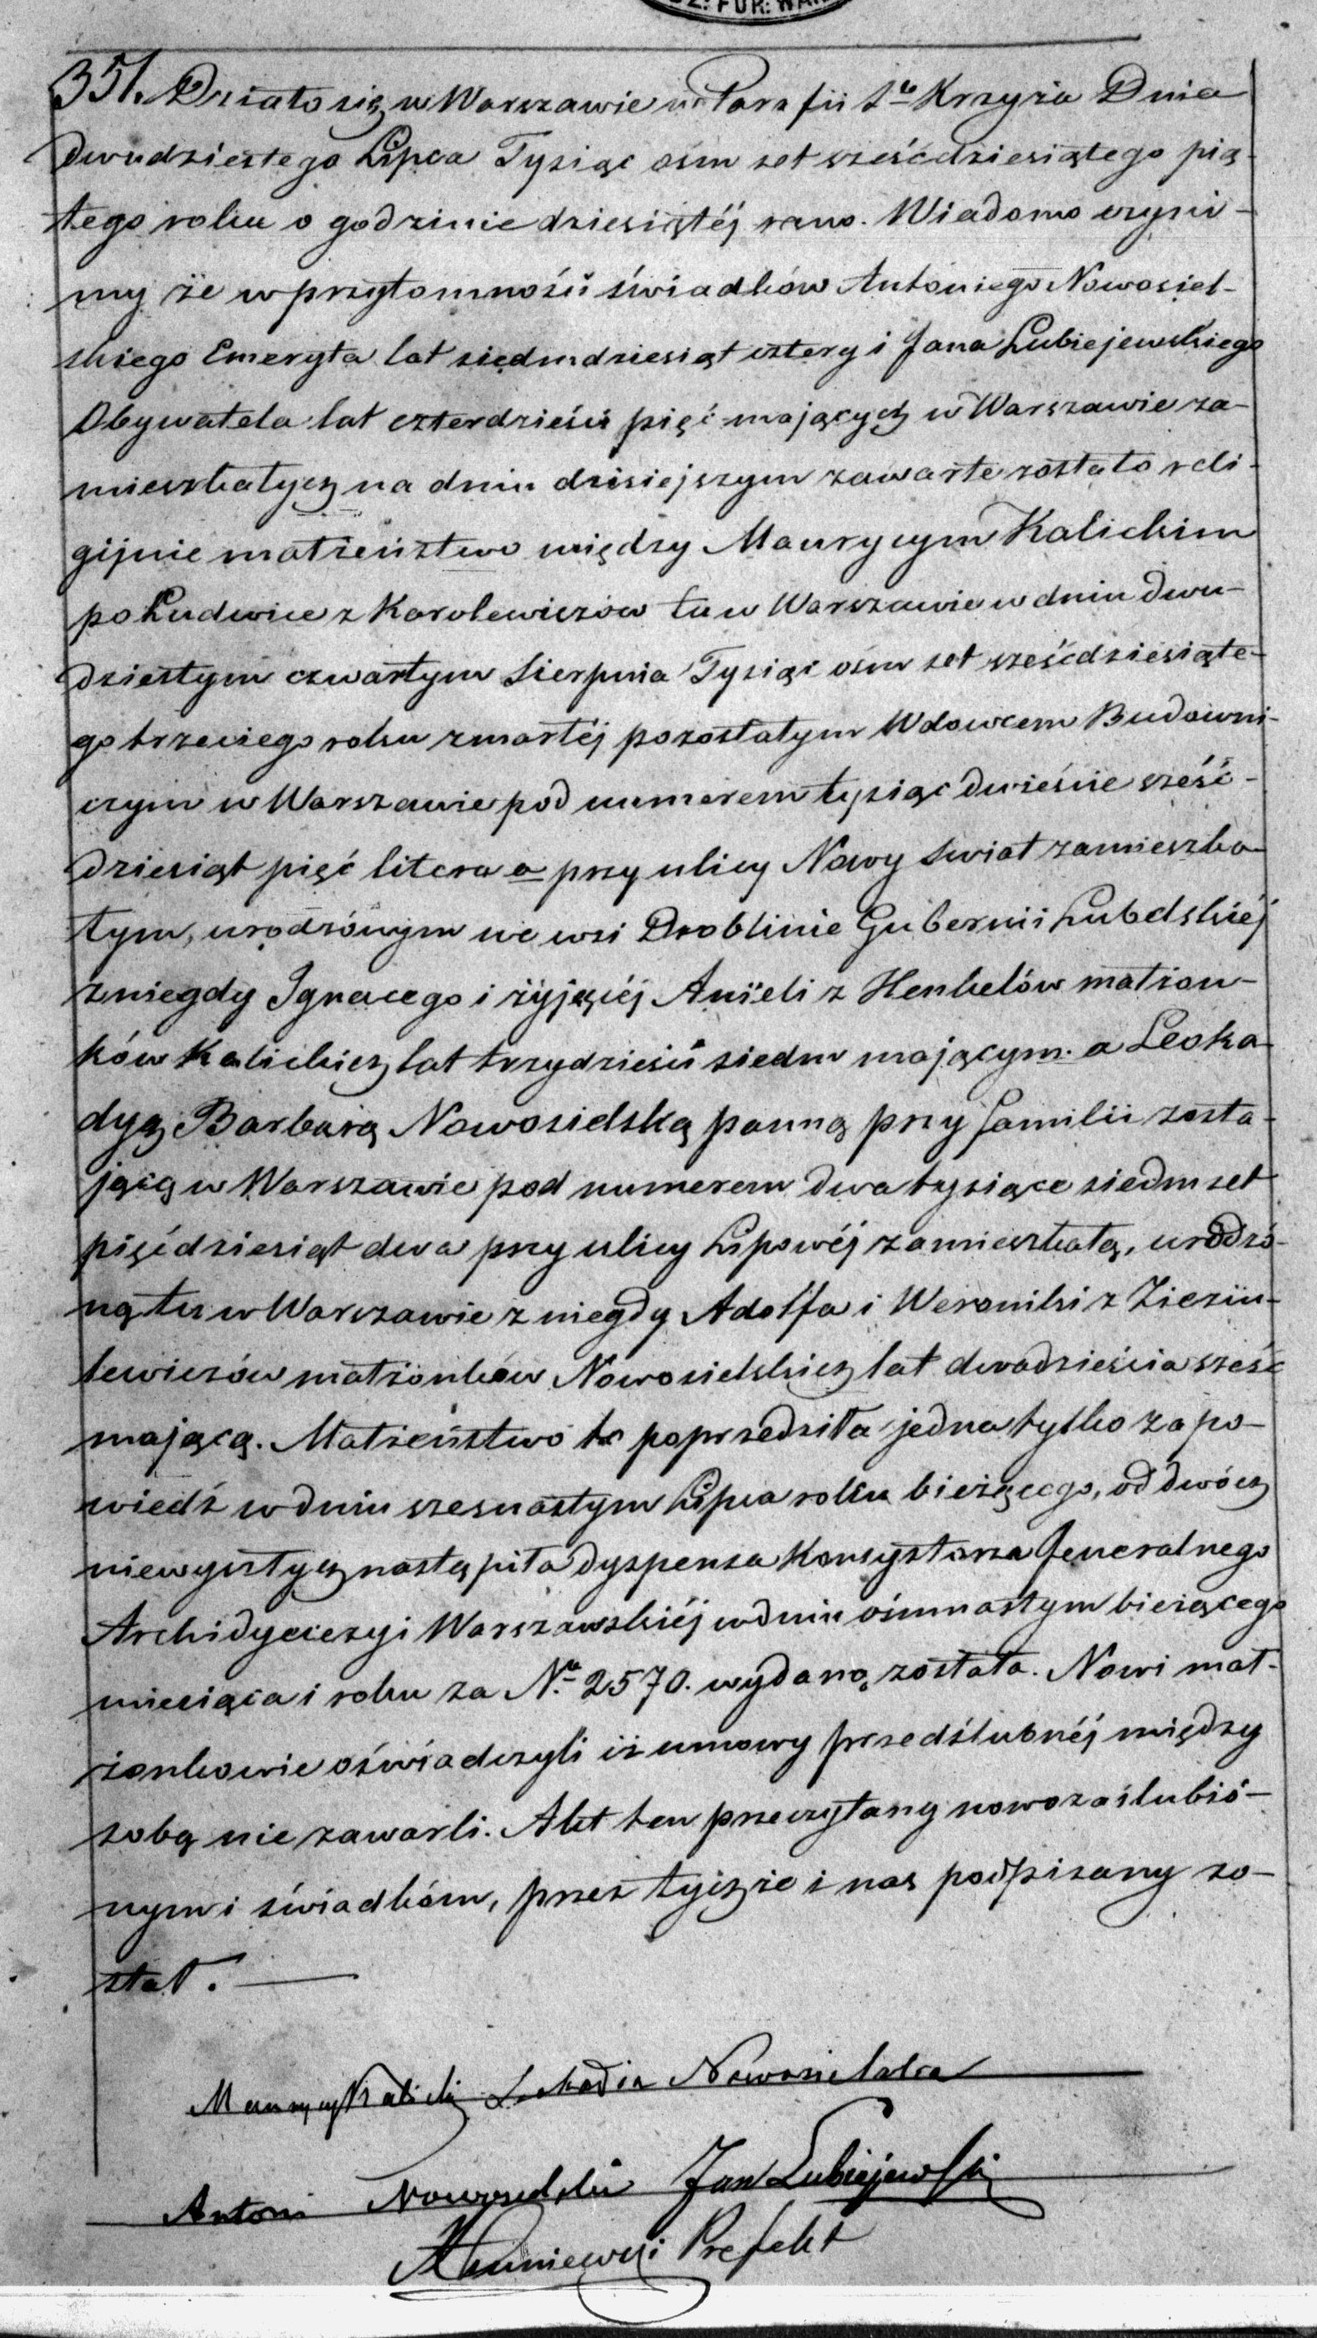 351. Działo się w Warszawie w Parafii Sgo Krzyża Dnia
dwudziestego Lipca Tysiąc ośm set sześćdziesiątego pią-
tego roku o godzinie dziesiątéj rano. Wiadomo czyni-
my że w przytomności świadków Antoniego Nowosiel-
skiego Emeryta lat siedmdziesiąt cztery i Jana Lubiejewskiego
Obywatela lat czterdzieści pięć mających w Warszawie za-
mieszkałych na dniu dzisiejszym zawarte zostało reli-
gijnie małżeństwo między Maurycym Kalickim
po Ludwice z Karolewiczów tu w Warszawie w dniu dwu-
dziestym czwartym Sierpnia Tysiąc ośm set sześćdziesiąte-
go trzeciego roku zmarłéj pozostałym Wdowcem Budowni-
czym w Warszawie pod numerem tysiąc dwieście sześć-
dziesiąt pięć litera a przy ulicy Nowy Swiat zamieszka-
łym, urodzónym we wsi Droblinie Gubernii Lubelskiéj
z niegdy Ignacego i żyjącéj Anieli z Henkelów małżon-
ków Kalickich lat trzydzieści siedm mającym. a Leoka-
dyą Barbarą Nowosielską panną przy familii zosta-
jącą w Warszawie pod numerem dwa tysiące siedmset
pięćdziesiąt dwa przy ulicy Lipowéj zamieszkałą, urodzó-
ną tu w Warszawie z niegdy Adolfa i Weroniki z
małżonków Nowosielskich lat dwadzieścia sześć
mającą. Małżeństwo to poprzedziła jedna tylko zapo-
wiedź w dniu szesnastym Lipca roku bieżącego, od dwóch
niewyszłych nastąpiła dyspensa Konsystorza Jeneralnego
Archidyecezyi Warszawskiéj w dniu ośmnastym bieżącego
miesiąca i roku za No 2570. wydaną została. Nowi mał-
żonkowie oświadczyli iż umowy przedślubnéj między
sobą nie zawarli. Akt ten przeczytany nowozaślubió-
nym i świadkóm, przez tychże i nas podpisany zo-
stał.
Maurycy Kalicki Leokadia Nowosielska
Antoni Nowosielski Jan Lubiejewski
Prefekt